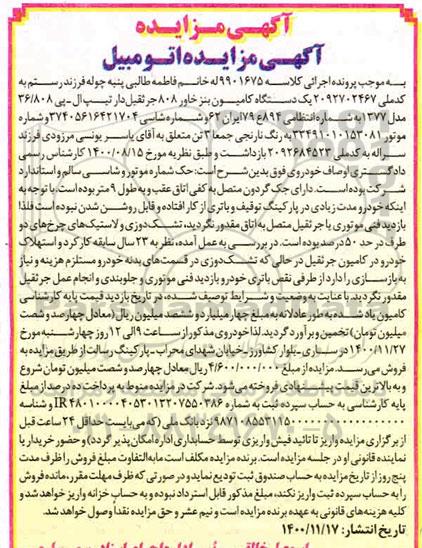 آگهی مزایده
آگهی مزایده اتومبیل
به موجب پرونده اجرائی کلاسه ۹۹۰۱۶۷۵ له خانم فاطمه طالبی پنبه چوله فرزند رستم به
کدملی ۲۰۹۲۷۰۲۴۶۷ یک دستگاه کامیون بنز خاور ۸۰۸ جرثقیل دار تیپ ال-پی ۳۶/۸۰۸
مدل ۱۳۷۷ به شماره انتظامی ۸۹۴ع۷۹ ایران ۶۲ و شماره شاسی ۳۷۴۰۵۶۱۶۴۲۱۷۰۴ و شماره
موتور ۳۳۴۹۱۰۱۰۱۵۳۰۸۱ به رنگ نارنجی جمعا ۳ تن متعلق به آقای یاسر یونسی مرزودی فرزند
سراله به کدملی ۲۰۹۲۶۸۴۵۲۳ بازداشت و طبق نظریه مورخ ۱۴۰۰/۰۸/۱۵ کارشناس رسمی
دادگستری اوصاف خودروی فوق بدین شرح است: حک شماره موتور و شاسی سالم و استاندارد
شرکت بوده است. دارای جک گردون متصل به کفی اتاق عقب و به طول ۹ متر بوده است. با توجه به
اینکه خودرو مدت زیادی در پارکینگ توقیف و باتری از کار افتاده و قابل روشن شدن نبوده است فلذا
بازدید فنی موتوری با جرثقیل متصل به اتاق مقدور نگردید، تشک دوزی و لاستیک های چرخ های دو
طرف در حد ۵۰ درصد بوده است. در بررسی به عمل آمده، نظر به ۲۳ سال سابقه کارکرد و استهلاک
خودرو در کامیون جرثقیل در حالی که تشک دوزی در قسمت های بدنه خودرو مستلزم هزینه و نیاز
به بازسازی را دارد از طرفی نقص باتری خودرو بازدید فنی موتوری و جلوبندی و انجام عمل جرثقیل
مقدور نگردید. با عنایت به وضعیت و شرایط توصیف شده، در تاریخ بازدید قیمت پایه کارشناسی
کامیون یاد شده به طور عادلانه به مبلغ چهار میلیارد و ششصد میلیون ریال (معادل چهارصد و شصت
میلیون تومان) تخمین و برآورد گردید. لذا خودروی مذکور از ساعت ۹ الی ۱۲ روز چهارشنبه مورخ
۱۴۰۰/۱۱/۲۷ در ساری-بلوار کشاورز-خیابان شهدای محراب-پارکینگ رسالت از طریق مزایده به
فروش می رسد. مزایده از مبلغ ۴/۶۰۰/۰۰۰/۰۰۰ ریال معادل چهارصد و شصت میلیون تومان شروع
و به بالاترین قیمت پیشنهادی فروخته می شود. شرکت در مزایده منوط به پرداخت ده درصد از مبلغ
پایه کارشناسی به حساب سپرده ثبت به شماره IR ۴۸۰۱۰۰۰۰۴۰۵۳۰۱۳۲۰۷۵۵۰۳۸۶ و شناسه
نزد بانک ملی (که می بایست حداقل ۲۴ ساعت قبل
از برگزاری مزایده واریز تا تائید فیش واریزی توسط حسابداری اداره امکان پذیر گردد) و حضور خریدار یا
نماینده قانونی او در جلسه مزایده است. برنده مزایده مکلف است مابه التفاوت مبلغ فروش را ظرف مدت
پنج روز از تاریخ مزایده به حساب صندوق ثبت تودیع نماید و در صورتی که ظرف مهلت مقرر، مانده فروش
را به حساب سپرده ثبت واریز نکند، مبلغ مذکور قابل استرداد نبوده و به حساب خزانه واریز خواهد شد و
کلیه هزینه های قانونی به عهده برنده مزایده است و نیم عشر و حق مزایده نقداً وصول خواهد شد.
تاریخ انتشار: ۱۴۰۰/۱۱/۱۷